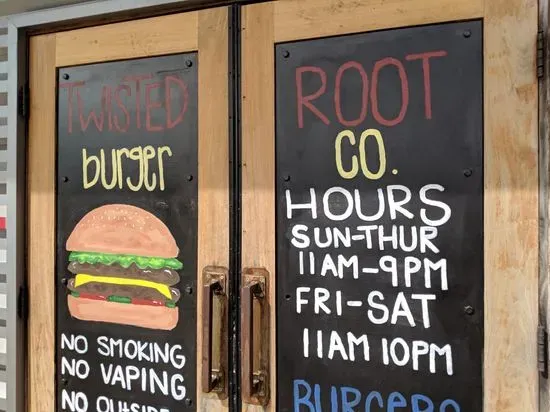 TWISTED
burger
NO SMOKING
NO VAPING
NO OUTSIDE
ROOT
CO.
HOURS
SUN-THUR
11AM-9PM
FRI-SAT
11AM 10PM
BURGERS